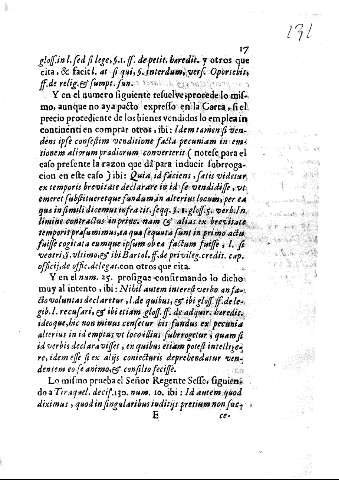 131
17
gloss.in l. sed si lege, §. 1. ff. de petit. haredit. y otros que
cita, & facit l. at si qui, §. interdum, vers. Oportebit,
ff. de relig. & sumpt. fun.
Y en el numero siguiente resuelve, procede lo mis-
mo, aunque no aya pacto expresso en la Carta, si el
precio procediente de los bienes vendidos lo emplea in
continenti en comprar otros, ibi: Idem tamen si ven-
dens ipse confestim venditione facta pecuniam in em-
tionem aliorum prædiorum converterit ( notese para el
caso presente la razon que dà para inducir subrroga-
cion en este caso ) ibi: Quia id faciens, satis videtur
ex temporis brevitate declarare in id se vendidisse, ut
emeret substitueretque fundum in alterius locum, per ea
que in simili dicemus infra tit. seqq. §. 1. gloss. 5. verb. In
limine contractus in princ. nam & alias ex brevitate
temporis præsumimus, ea quæ sequuta sunt in primo actu
fuisse cogitata eumque ipsum ob ea factum fuisse, l. se
veotri, §. ultimo, & ibi Bartol. ff. de privileg. credit. cap.
officij, de offic. delegat. con otros que cita.
Y en el num. 25. prosigue confirmando lo dicho
muy al intento, ibi: Nihil autem interest verbo an fa-
cto voluntas declaretur, l. de quibus, & ibi gloss. ff. de le-
gib. l. recusari, & ibi etiam gloss. ff. de adquir. haredit.
ideoque, hic non minus censetur bis fundus ex pecunia
alterius in id emptus vt locoillius subrrogetur, quam si
id verbis declaravisset, ex quibus etiam potest intellige-
re, idem esse si ex alijs coniecturis deprehendatur ven-
dentem eo se animo, & consilio fecisse.
Lo mismo prueba el Señor Regente Sesse, siguien-
do a Tiraquel. decis. 130. num. 10. ibi: Id autem quod
diximus, quod in singularibus iuditijs pretium non suc-
E ce-